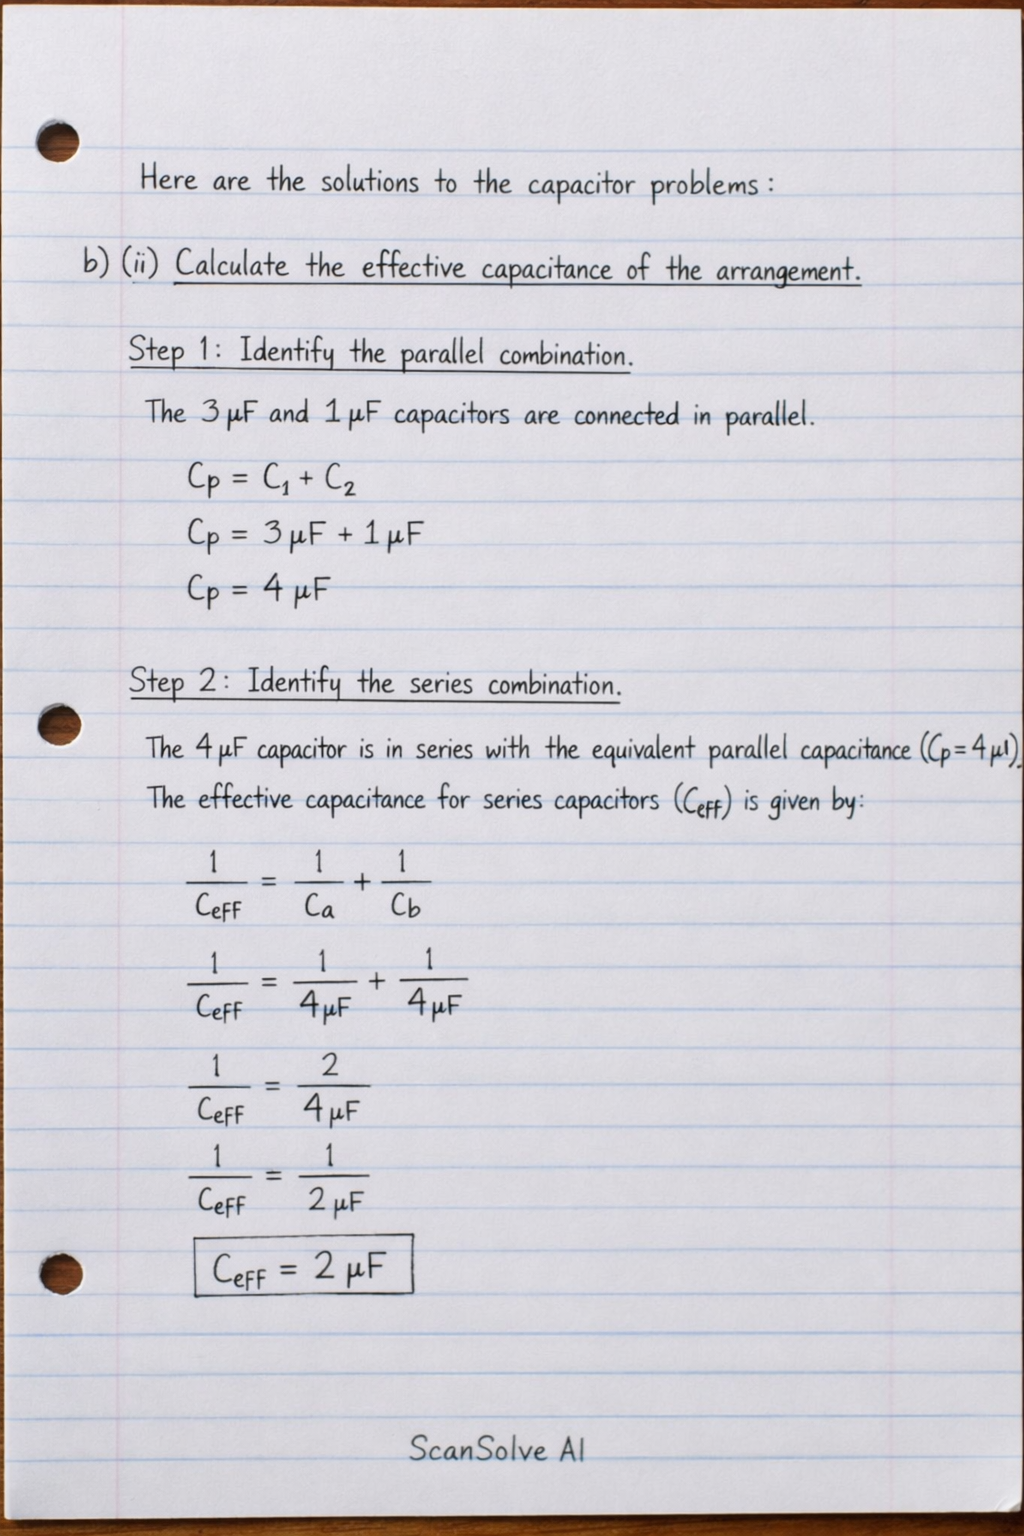 Here are the solutions to the capacitor problems:
b) (ii) Calculate the effective capacitance of the arrangement.
Step 1: Identify the parallel combination.
The 3 μF and 1 μF capacitors are connected in parallel.
Cp = C₁ + C₂
Cp = 3 μF + 1 μF
Cp = 4 μF
Step 2: Identify the series combination.
The 4 μF capacitor is in series with the equivalent parallel capacitance (Cp = 4 μl).
The effective capacitance for series capacitors (Ceff) is given by:
1/Ceff = 1/Ca + 1/Cb
1/Ceff = 1/4 μF + 1/4 μF
1/Ceff = 2/4 μF
1/Ceff = 1/2 μF
Ceff = 2 μF
ScanSolve AI